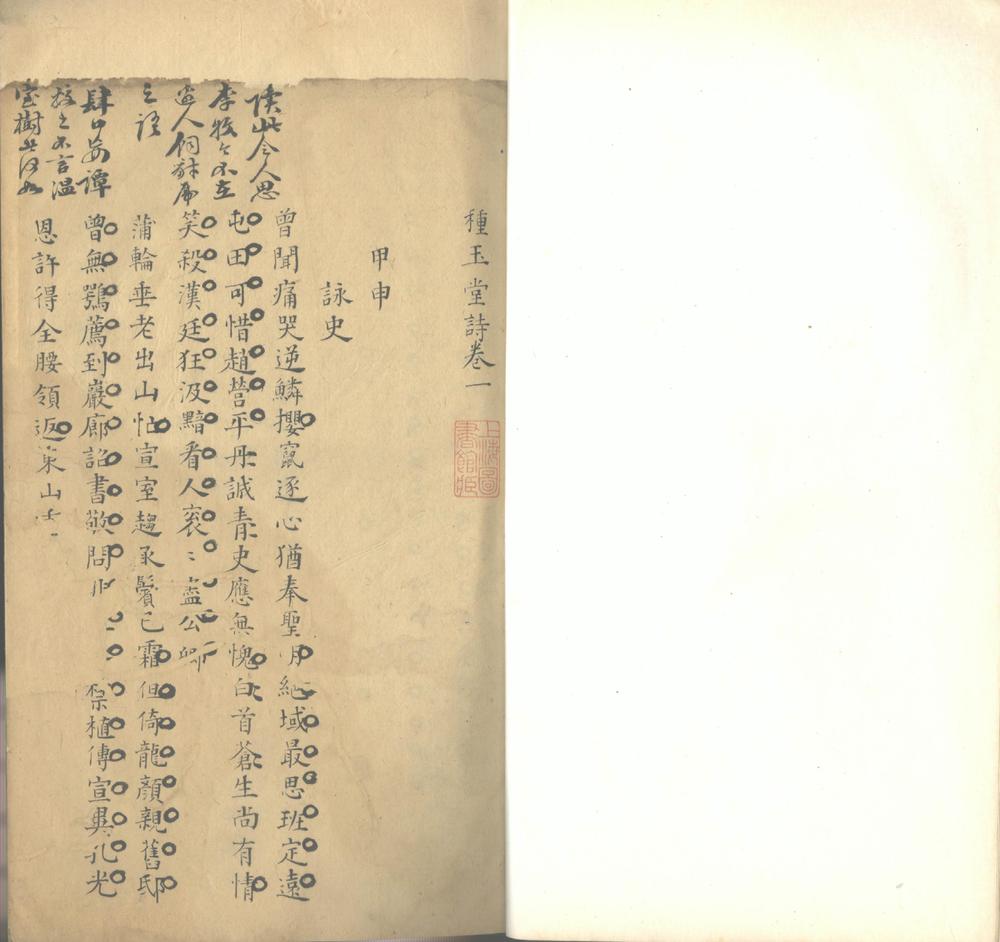 種玉堂詩卷一
上海圖書館藏
甲申
詠史
曾聞痛哭逆鱗攖竄逐心猶奉聖明絕域最思班定遠
屯田可惜趙營平丹誠青史應無愧白首蒼生尚有情
笑殺漢廷狂汲黯看人衮〻盡公卿
蒲輪垂老出山忙宣室趨承鬢已霜但倚龍顏親舊邸
曾無鶚薦到巖廊詔書敬問 禁植傳宣與孔光
恩許得全腰領返 山
讀此令人思
李牧
人伺
之語
肆口妄譚
校之不言溫
室樹